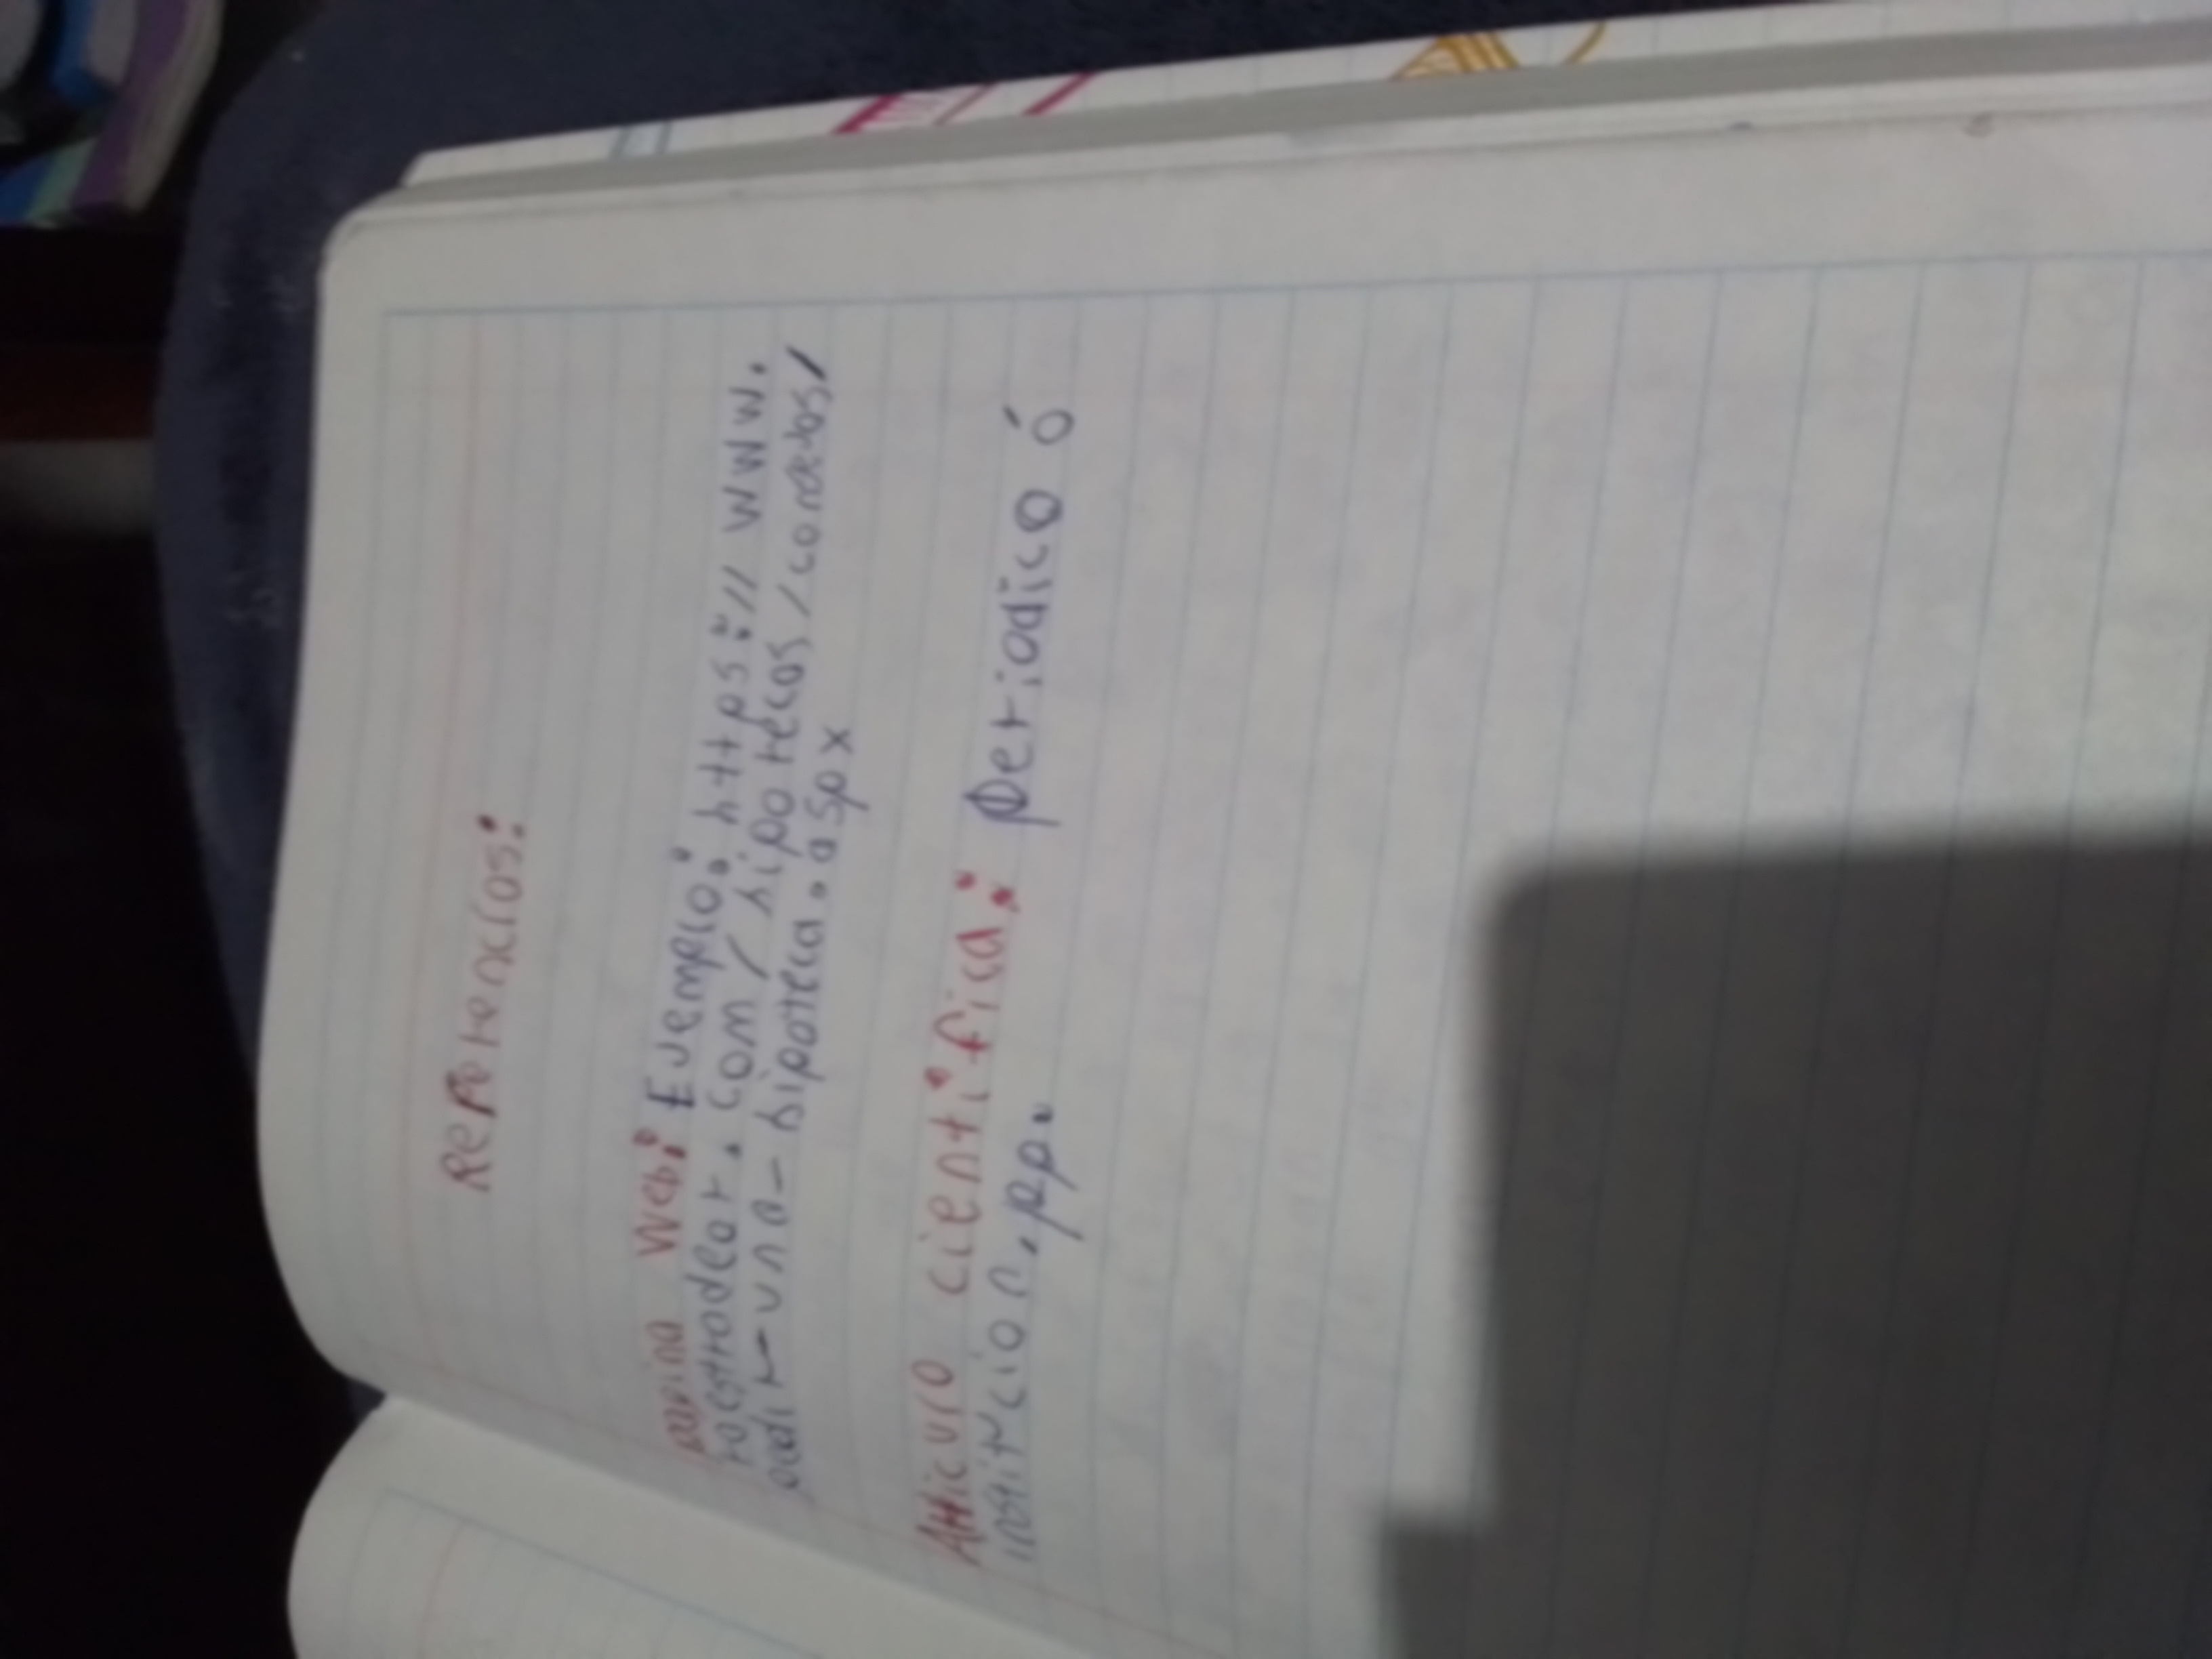 Referencias:
pagina Web: Ejemplo: https://www.
rastrodear.com/hipotecas/consejos/
pedir-una-hipoteca.aspx
Articulo cientifica: periodico ó
institucion, pp.